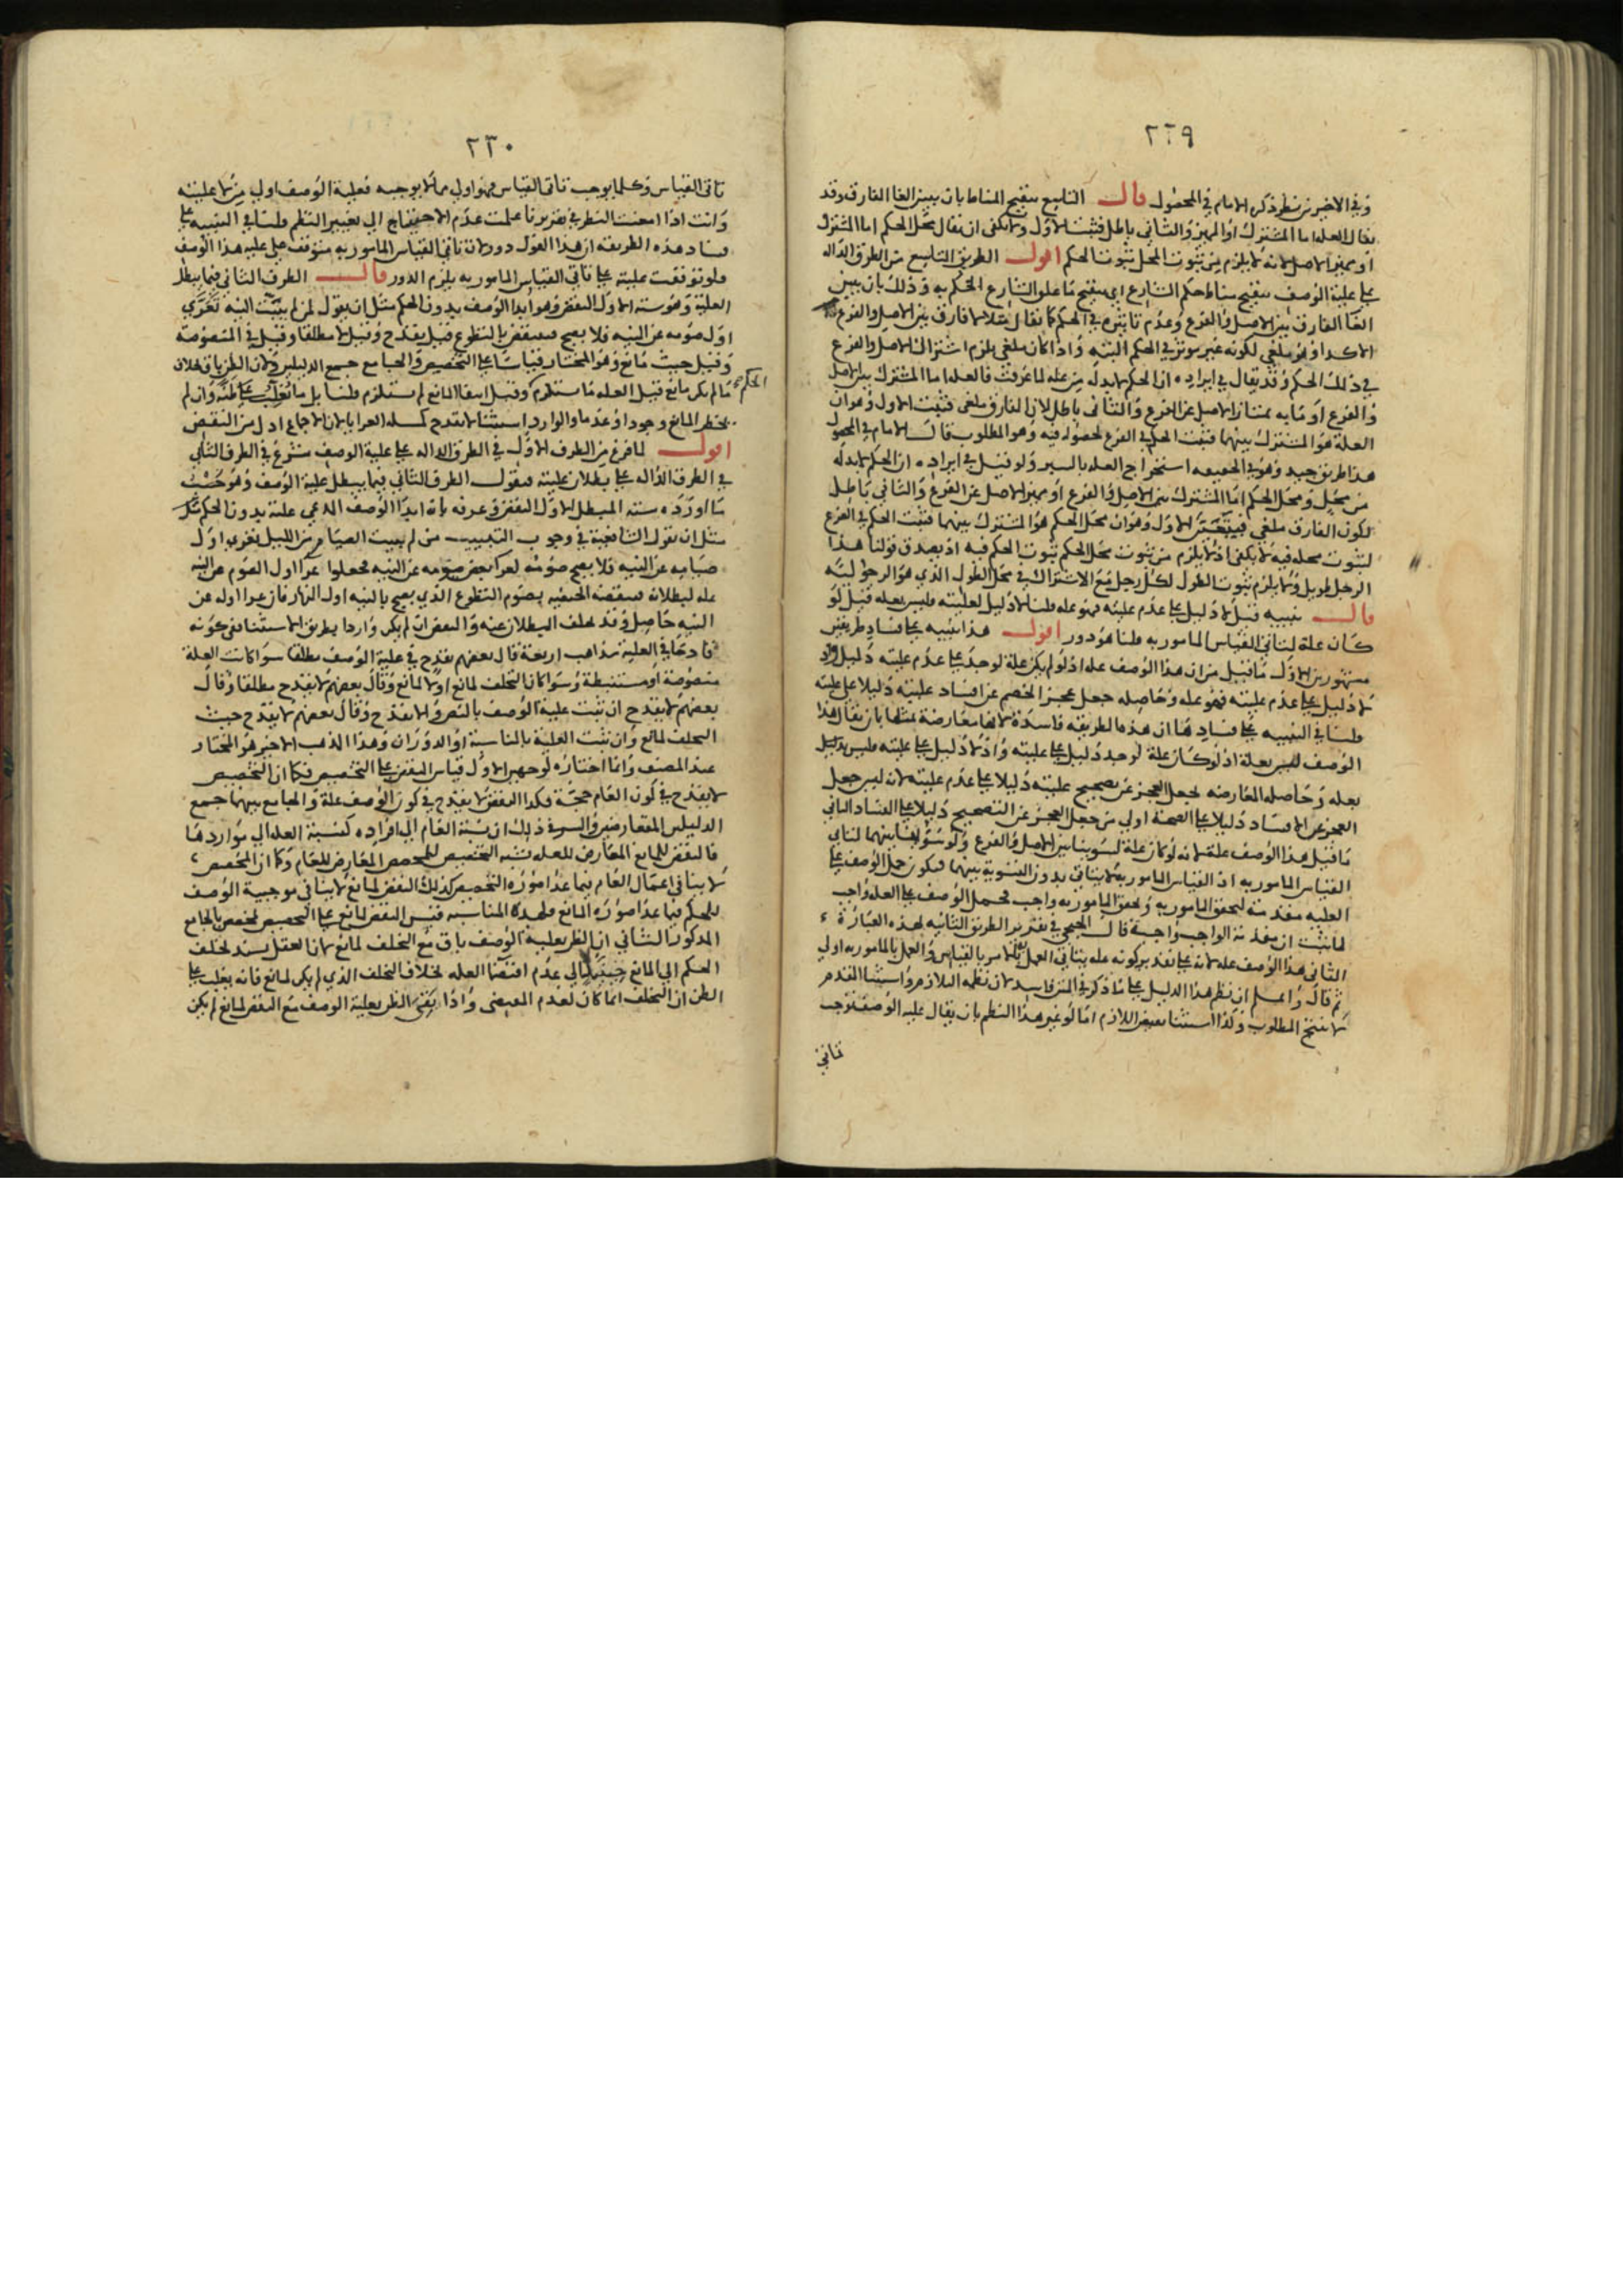 ٢٢٩
وفي الاخير نظر ذكره الامام في المحصول قال التاسع تنقيح المناط بان يبين الغا الفارق وقد
يقال العله اما المشترك او المميز والثاني باطل فثبت الاول ولا يكفى ان يقال محل الحكم اما المشترك
او مميز الاصل لانه لا يلزم من ثبوت المحل ثبوت الحكم اقول الطريق التاسع من الطرق الداله
على علية الوصف تنقيح مناط حكم الشارع اي تنقيح ما علق الشارع الحكم به وذلك بان يبين
الغا الفارق بين الاصل والفرع وعدم تاثيره في الحكم كما يقال مثلا لا فارق بين الاصل والفرع
الا كذا وهو ملغى لكونه غير موثر في الحكم البتة واذا كان ملغى يلزم اشتراك الاصل والفرع
في ذلك الحكم وقد يقال في ايراده ان الحكم لا بد له من عله لما عرفت فالعله اما المشترك بين الاصل
والفرع او ما به يمتاز الاصل عن الفرع والثاني باطل لان الفارق ملغى فثبت الاول وهو ان
العلة هو المشترك بينهما فثبت الحكم في الفرع لحصوله فيه وهو المطلوب قال الامام في المحصول
هذا طريق جيد وهو في الحقيقه استخراج العله بالسبر ولو قيل في ايراده ان الحكم لا بد له
من محل ومحل الحكم اما المشترك بين الاصل والفرع او مميز الاصل عن الفرع والثاني باطل
لكون الفارق ملغى فيتعين الاول وهو ان محل الحكم هو المشترك بينهما فثبت الحكم في الفرع
لثبوت محله فيه لا يكفى اذ لا يلزم من ثبوت محل الحكم ثبوت الحكم فيه اذ يصدق قولنا هذا
الرجل طويل ولا يلزم ثبوت الطول لكل رجل مع الاشتراك في محل الطول الذي هو الرجوليه
قال تنبيه قيل لا دليل على عدم عليته فهو عله قلنا لا دليل لعليته فليس بعله قيل لو
كان علة لتاتي القياس المامور به قلنا هو دور اقول هذا تنبيه على فساد طريقين
مشهورين الاول ما قيل من ان هذا الوصف عله اذ لو لم يكن علة لوجد على عدم عليته دليل واذ
لا دليل على عدم عليته فهو عله وحاصله جعل عجز الخصم عن افساد عليته دليلا على عليته
قلنا في التنبيه على فسادها ان هذه الطريقه فاسدة لانها معارضة بمثلها بان يقال هذا
الوصف ليس بعلة اذ لو كان علة لوجد دليل على عليته واذ لا دليل على عليته فليس
بعله وحاصله المعارضه بجعل العجز عن تصحيح عليته دليلا على عدم عليته لانه ليس جعل
العجز عن الافساد دليلا على الصحة اولى من جعل العجز عن التصحيح دليلا على الفساد الثاني
ما قيل هذا الوصف علة لانه لو كان علة لسوينا بين الاصل والفرع ولو سوينا بينهما لتاتى
القياس المامور به اذ القياس المامور به لا يتاتى بدون التسوية بينهما فيكون حمل الوصف على
العليه مقدمة لتحقق المامور به وتحقق المامور به واجب فحمل الوصف على العله واجب
لما ثبت ان مقدمة الواجب واجبة قال في تقرير الطريق الثانيه بهذه العبارة
الثاني هذا الوصف عله لانه على تقدير كونه عله يتاتى العمل بالامر بالقياس والعمل بالمامور به اولى
ثم قال واعلم ان نظم هذا الدليل على ما ذكر في المتن فاسد لان نظمه التلازم واستثنا المقدم
لا ينتج المطلوب وكذا استثنا نقيض اللازم اما لو غير هذا النظم بان يقال عليه الوصف توجب
تاتي
٢٣٠
تاتى القياس وكلما يوجب تاتى القياس فهو اولى مما لا يوجبه فعلية الوصف اولى من لا عليته
وانت اذا امعنت النظر في تقريرنا علمت عدم الاحتياج الى تغيير النظم قلنا في التنبيه على
فساد هذه الطريقه ان هذا القول دور لان تاتى القياس المامور به متوقف على عليه هذا الوصف
فلو توقفت عليته على تاتى القياس المامور به يلزم الدور قال الطرف الثاني فيما يبطل
العلية وهو ستة الاول النقض وهو ابدا الوصف بدون الحكم مثل ان يقول لمن لم يبيت النيه تعرى
اول صومه عن النيه فلا يصح فينتقض بالتطوع قيل يقدح وقيل لا مطلقا وقيل في المنصوصة
وقيل حيث مانع وهو المختار قياسا على التخصيص والجامع جمع الدليلين ولان الظن باق بخلاف
ما لم يكن مانع قيل العله ما يستلزم الحكم وقيل انتفا المانع لم يستلزم قلنا بل ما يغلب على ظنه وان لم
يخطر المانع وجودا او عدما والوارد استثنا لا يقدح كمسله العرايا لان الاجماع ادل من النقض
اقول لما فرغ من الطرف الاول في الطرق الداله على علية الوصف شرع في الطرف الثاني
في الطرق الداله على بطلان عليته فيقول الطرف الثاني فيما يبطل علية الوصف وهو حسب
ما اورده سته المبطل الاول النقض وعرفه بانه ابدا الوصف المدعى علته بدون الحكم
مثل ان يقول الشافعية في وجوب التبييت من لم يبيت الصيام من الليل تعرى اول
صيامه عن النيه فلا يصح صومه لعرا بعض صومه عن النيه فجعلوا عرا اول الصوم عن النيه
عله لبطلانه فينقضه الحنفيه بصوم التطوع الذي يصح بالنيه اول النهار فان عرا اوله عن
النيه حاصل وقد تخلف البطلان عنه والنقض ان لم يكن واردا بطريق الاستثنا ففي كونه
قادحا في العلية مذاهب اربعة قال بعضهم يقدح في علية الوصف مطلقا سوا كانت العلة
منصوصة او مستنبطة وسوا كان التخلف لمانع او لا لمانع وقال بعضهم لا يقدح مطلقا وقال
بعضهم لا يقدح ان ثبت علية الوصف بالنص والا يقدح وقال بعضهم لا يقدح حيث
التخلف لمانع وان ثبت العلية بالمناسبة او الدوران وهذا المذهب الاخير هو المختار
عند المصنف وانما اختاره لوجهين الاول قياس النقض على التخصيص فكما ان التخصيص
لا يقدح في كون العام حجة فكذا النقض لا يقدح في كون الوصف علة والجامع بينهما جمع
الدليلين المتعارضين والسر في ذلك ان نسبة العام الى افراده كنسبة العله الى مواردها
فالنقض للمانع المعارض للعله يشبه التخصيص للمخصص المعارض للعام وكما ان المخصص
لا ينافى اعمال العام فيما عدا صوره التخصيص كذلك النقض لمانع لا ينافى موجبية الوصف
للحكم فيما عدا صوره المانع فلهذه المناسبه قيس النقض لمانع على التخصيص لمخصص بالجامع
المذكور الثاني ان الظن بعلية الوصف باق مع التخلف لمانع لان العقل يسند تخلف
الحكم الى المانع لا الى عدم اقتضا العله بخلاف التخلف الذي لم يكن لمانع فانه يغلب على
الظن ان التخلف انما كان لعدم المقتضى واذا بقى الظن بعلية الوصف مع النقض لمانع لم يكن